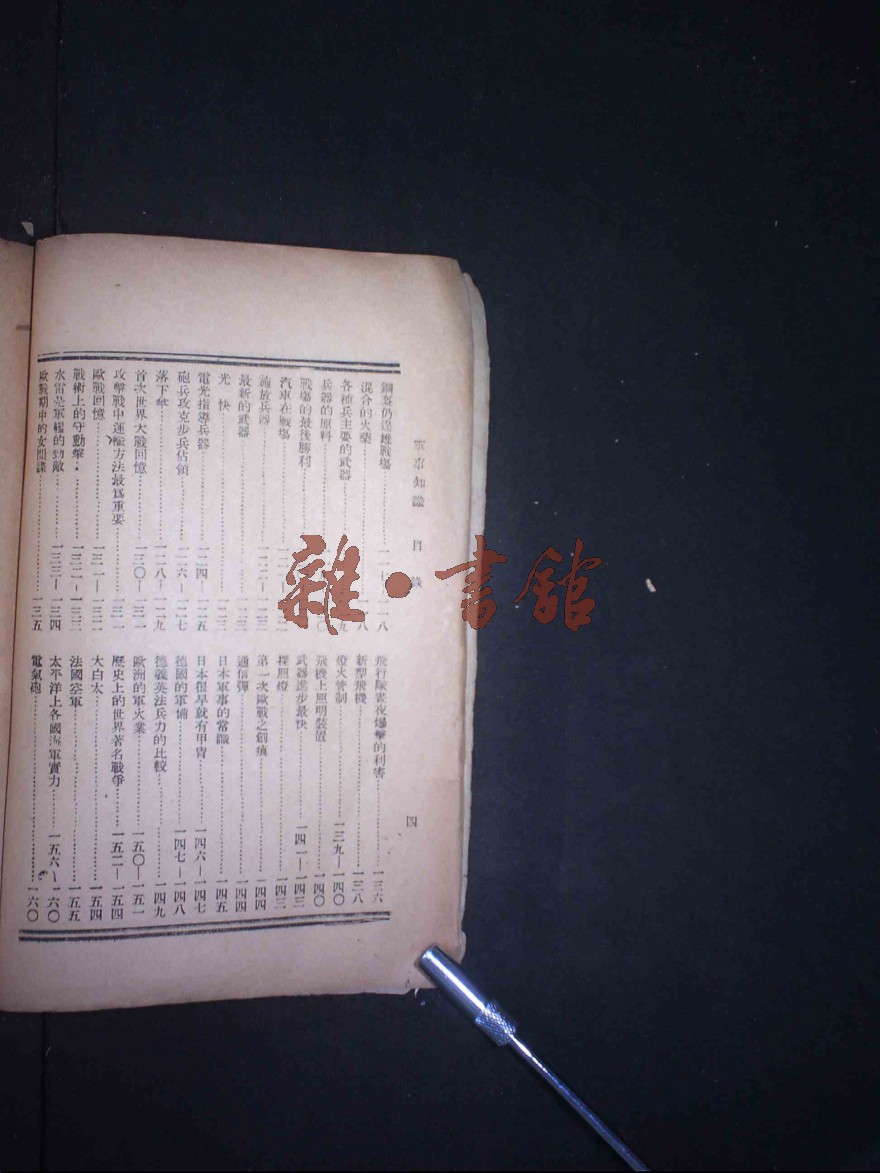 軍事知識 目錄 四
鋼盔仍逞雄戰場……一一七—一一八
混合的火藥……一一八
各種兵主要的武器……九
兵器的原料……〇
戰場的最後勝利
汽車在戰場……二
施放兵器……一二二—一二三
最新的武器……一二三
光 快……一二三
電光指導兵器……一二四—一二五
砲兵攻克步兵佔領……一二六—一二七
落下傘……一二八—一二九
首次世界大戰回憶……一三〇—一三一
攻擊戰中運輸方法最爲重要……一三一
歐戰回憶……一三一—一三二
戰術上的守動擊……一三二—一三三
水雷是軍艦的勁敵……一三三—一三四
歐戰期中的女間諜……一三五
飛行隊晝夜爆擊的利害……一三六
新型飛機……一三八
燈火管制……一三九—一四〇
飛機上照明裝置……一四〇
武器進步最快……一四一—一四三
探照燈……一四三
第一次歐戰之創痕……一四四
通信彈……一四四
日本軍事的常識……一四五
日本很早就有甲冑……一四六—一四七
德國的軍備……一四七—一四八
德義英法兵力的比較……一四九
歐洲的軍火業……一五〇—一五一
歷史上的世界著名戰爭……一五二—一五四
大白太……一五四
法國空軍……一五五
太平洋上各國海軍實力……一五六—一六〇
電氣砲……一六〇
雜·書館